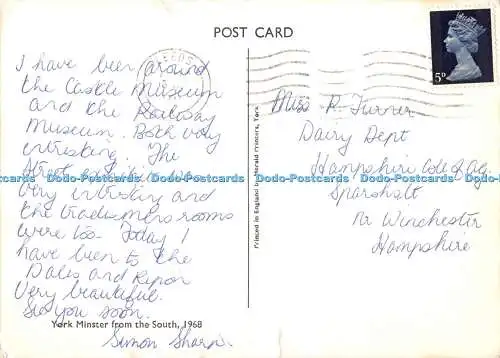 POST CARD
LEEDS
5D
I have been around
the Castle Museum
and the Railway
Museum. Both very
intristing. The
Street
very intristing and
the tradesmens rooms
were too. Today I
have been to the
Dales and Ripon
Very beautiful.
See you soon.
Simon Sharp.
Miss R. Turner
Dairy Dept
Hampshire Col. of Ag.
Sparsholt
nr Winchester
Hampshire
Printed in England by Herald Printers, York
York Minster from the South, 1968
Dodo-Postcards Dodo-Postcards Dodo-Postcards Dodo-Postcards Dodo-Postcards
Dodo-Postcards Dodo-Postcards Dodo-Postcards Dodo-Postcards Dodo-Postcards